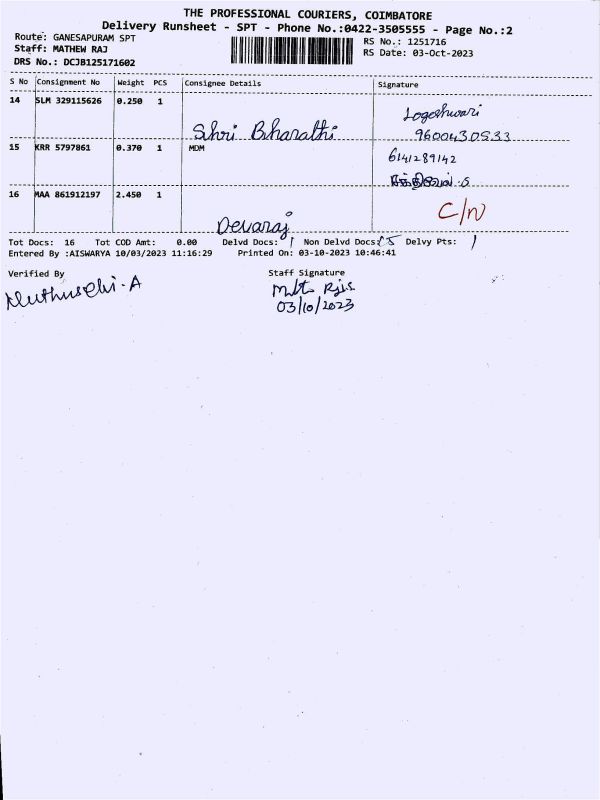 THE PROFESSIONAL COURIERS, COIMBATORE
Delivery Runsheet - SPT - Phone No.:0422-3505555 - Page No.:2
Route: GANESAPURAM SPT
RS No.: 1251716
Staff: MATHEW RAJ
RS Date: 03-Oct-2023
DRS No.: DCJB125171602
S No Consignment No Weight PCS Consignee Details Signature
14 SLM 329115626 0.250 1 Logeshwari
Shri Bharathi 9600430533
15 KRR 5797861 0.370 1 MDM 6141289142
16 MAA 861912197 2.450 1 C/N
Devaraj
Tot Docs: 16 Tot COD Amt: 0.00 Delvd Docs: 1 Non Delvd Docs: 15 Delvy Pts: 1
Entered By :AISWARYA 10/03/2023 11:16:29 Printed On: 03-10-2023 10:46:41
Verified By Staff Signature
03/10/2023